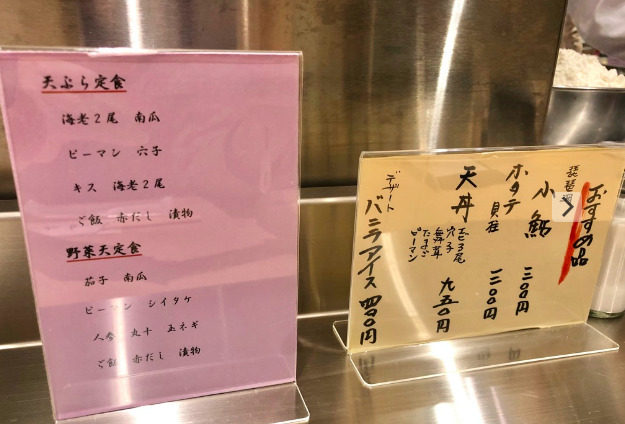 天ぷら定食
海老2尾 南瓜
ピーマン 穴子
キス 海老2尾
ご飯 赤だし 漬物
野菜天定食
茄子 南瓜
ピーマン シイタケ
人参 丸十 玉ネギ
ご飯 赤だし 漬物
おすすめ品
琵琶湖
小鮎 三〇〇円
ホタテ
貝柱 一二〇〇円
天丼
穴子
舞茸
たまご
ピーマン
九五〇円
デザート
バニラアイス 四〇〇円